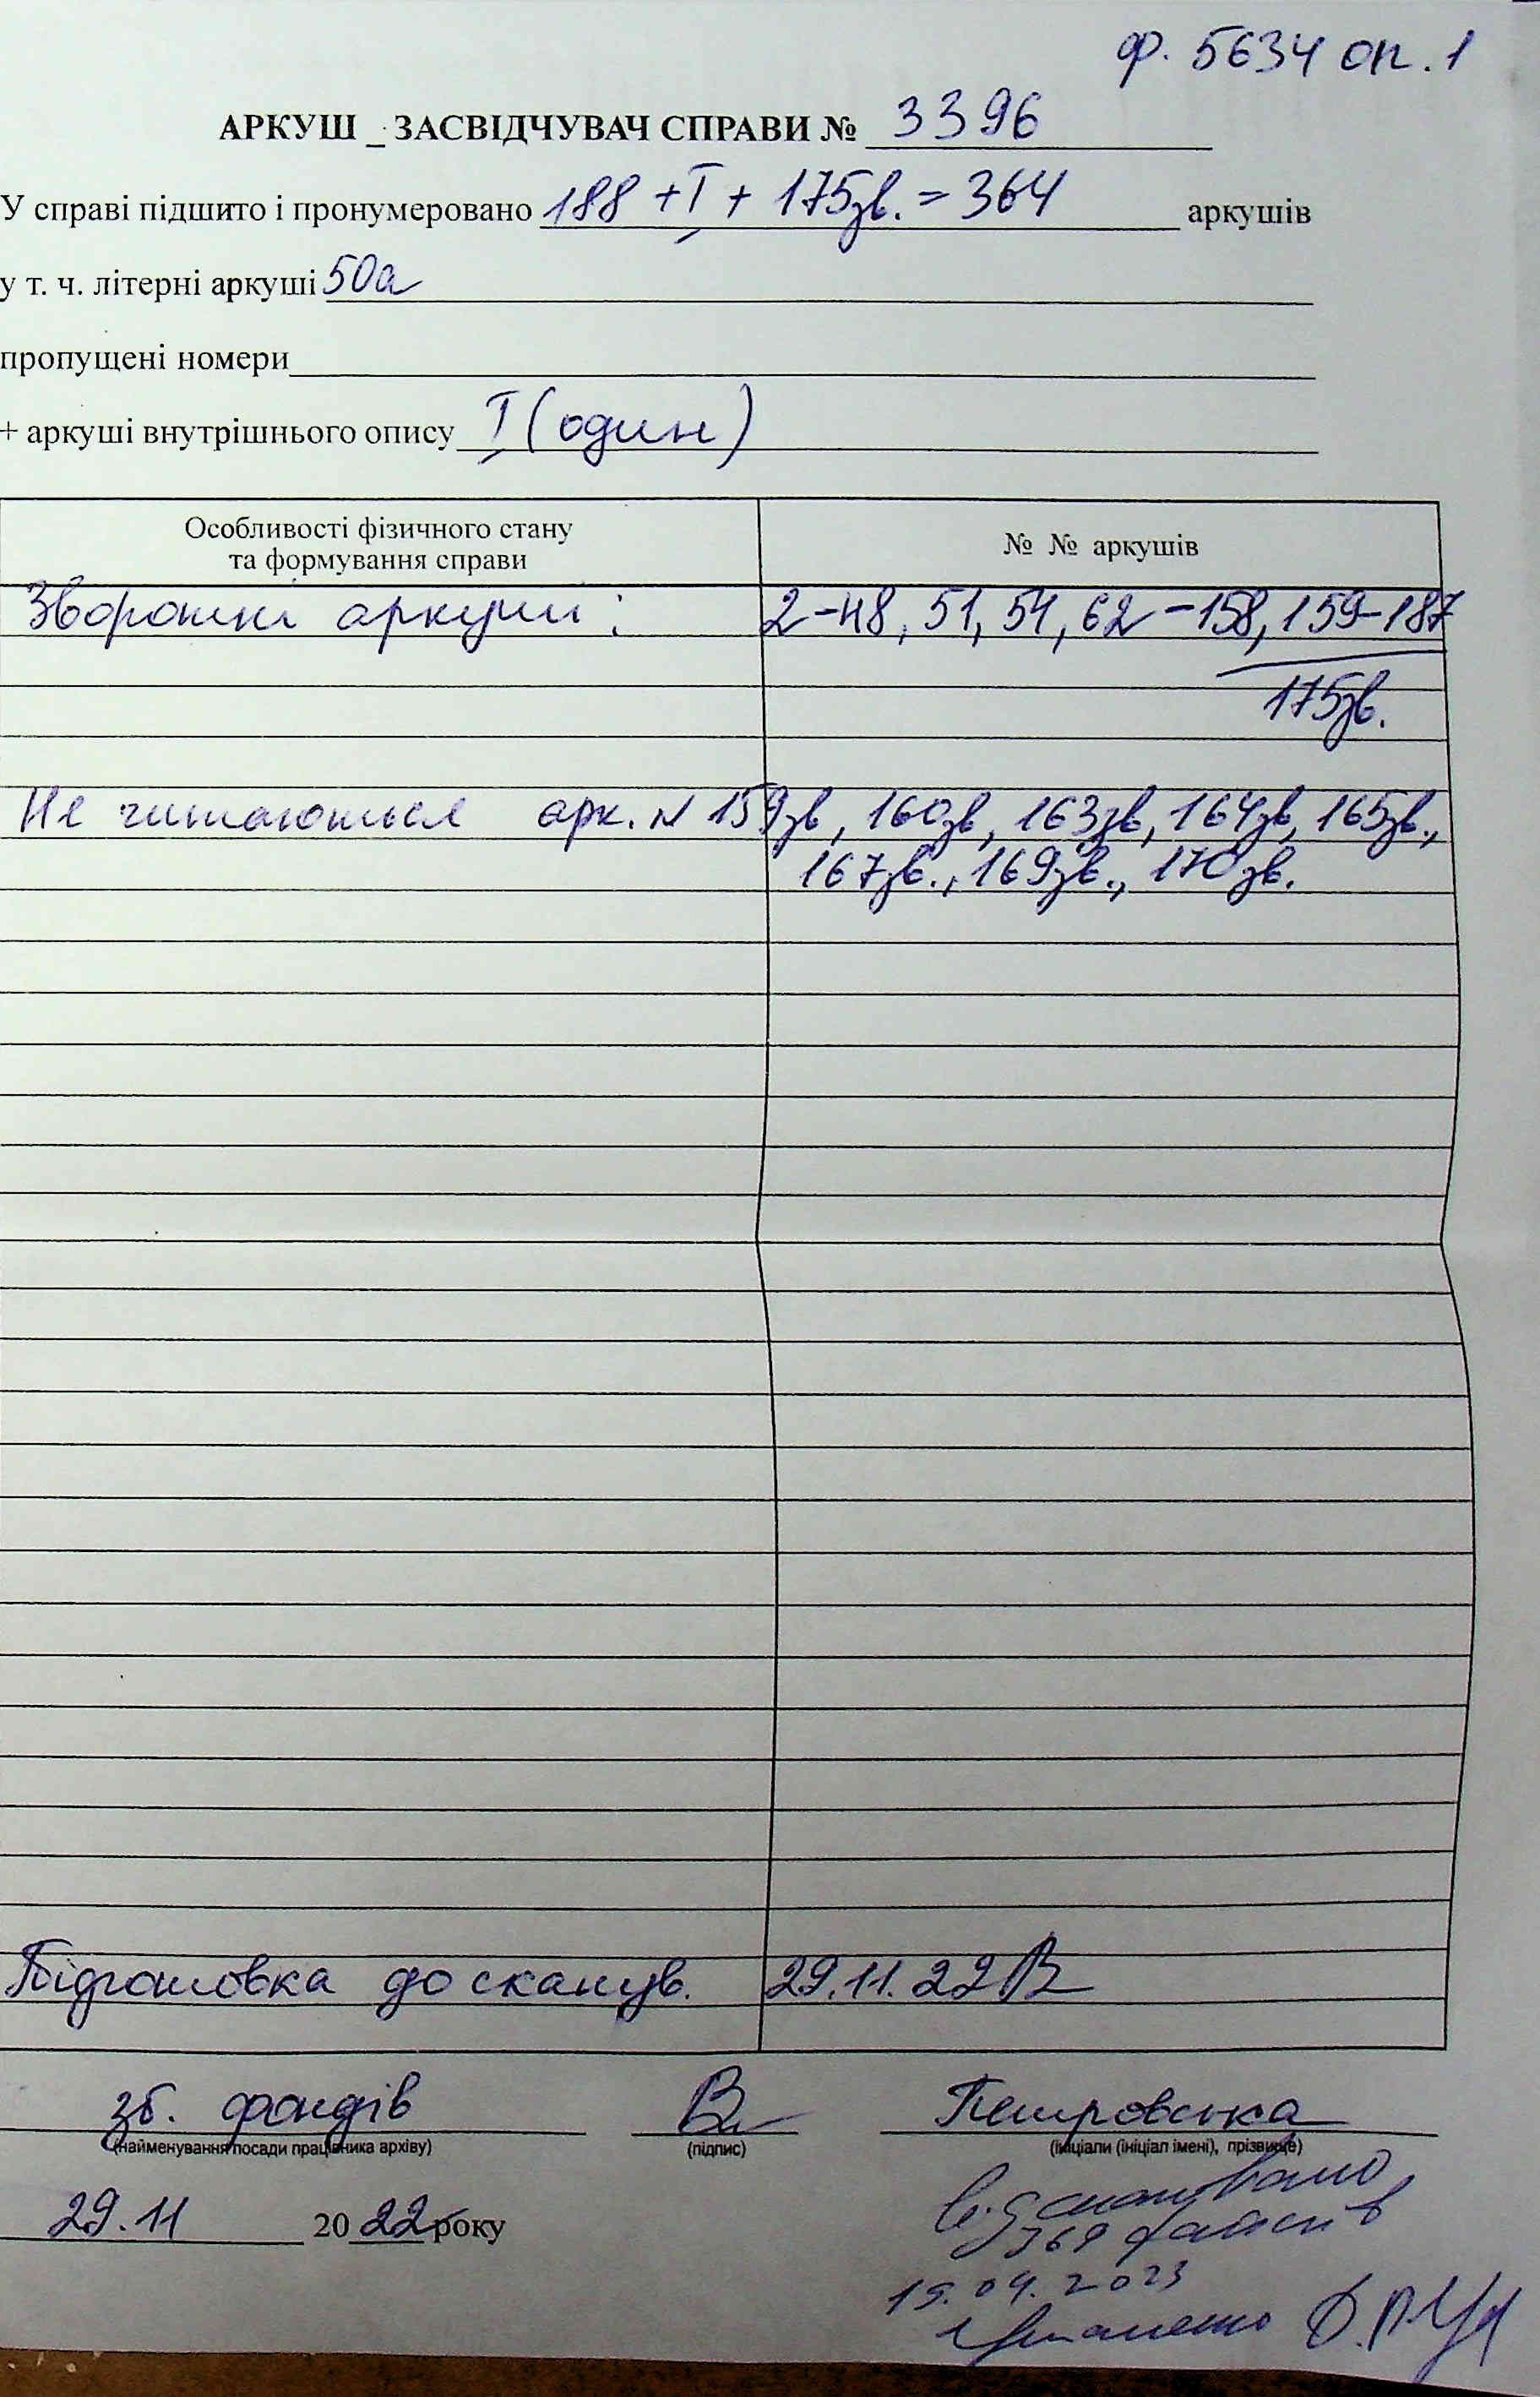 ф. 5634 оп. 1
АРКУШ _ ЗАСВІДЧУВАЧ СПРАВИ № 3396
У справі підшито і пронумеровано 188 + I + 175зв. = 364 аркушів
у т. ч. літерні аркуші 50а
пропущені номери
+ аркуші внутрішнього опису I (один)
Особливості фізичного стану
та формування справи
№ № аркушів
Зворотні аркуші: 2-48, 51, 54, 62-158, 159-187
175зв.
Не читаються арк. N 159зв, 160зв, 163зв, 164зв, 165зв.,
167зв., 169зв., 170зв.
Підготовка до сканув. 29.11.22
зб. фондів Петровська
(найменування посади працівника архіву) (підпис) (ініціали (ініціал імені), прізвище)
29.11 2022 року
Відскановано
369 файлів
19.04.2023